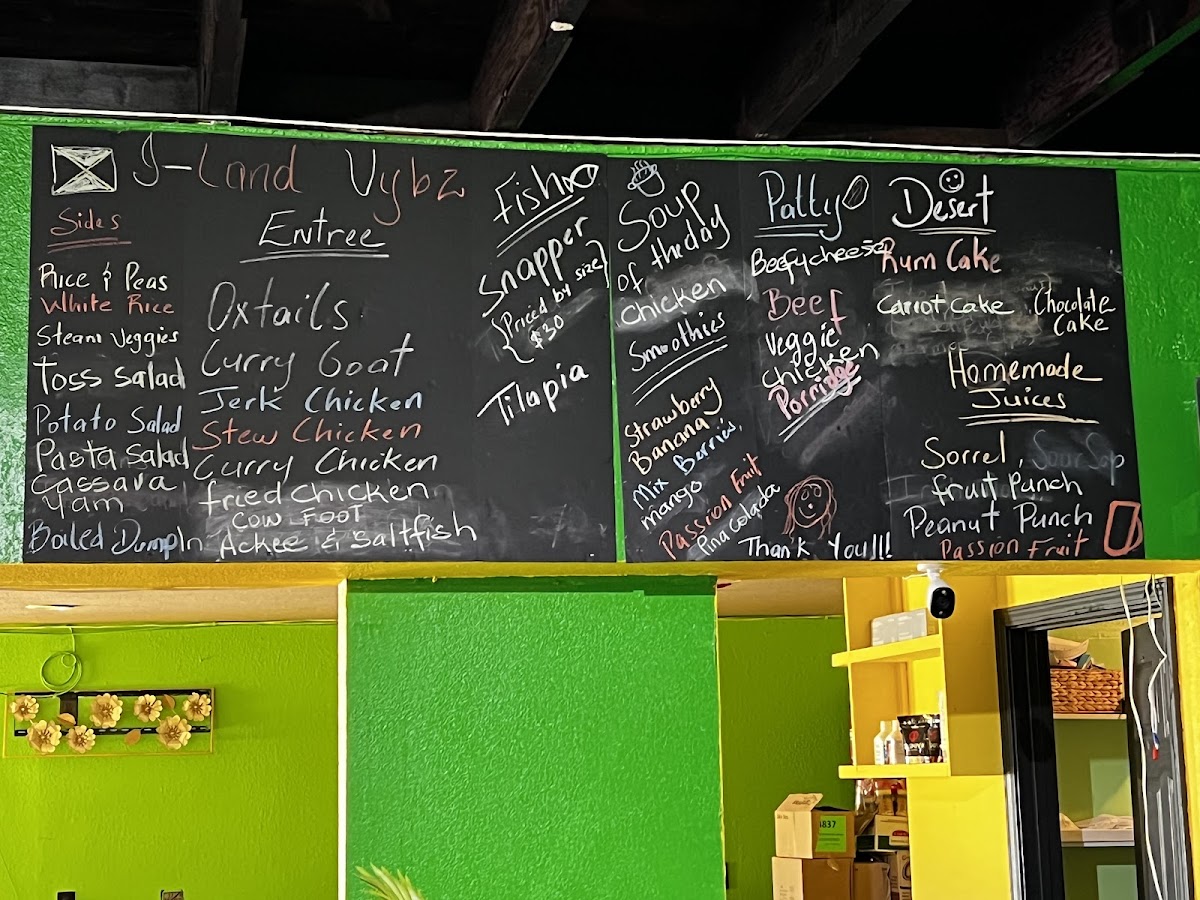 I-Land Vybz
Sides
Rice & Peas
White Rice
Steam Veggies
Toss Salad
Potato Salad
Pasta Salad
Cassava
Yam
Boiled Dumpln
Entree
Oxtails
Curry Goat
Jerk Chicken
Stew Chicken
Curry Chicken
fried chicken
COW FOOT
Ackee & Saltfish
Fish
Snapper
{Priced by size}
$30
Tilapia
Soup
of the day
Chicken
Smoothies
Strawberry
Banana
Mix Berries,
mango
Passion Fruit
Pina colada
Patty
Beefycheese
Beef
Veggie
chicken
Porridge
Thank You!!!
Desert
Rum Cake
Carrot Cake, Chocolate
Cake
Homemade
Juices
Sorrel, Sour Sop
fruit Punch
Peanut Punch
Passion Fruit